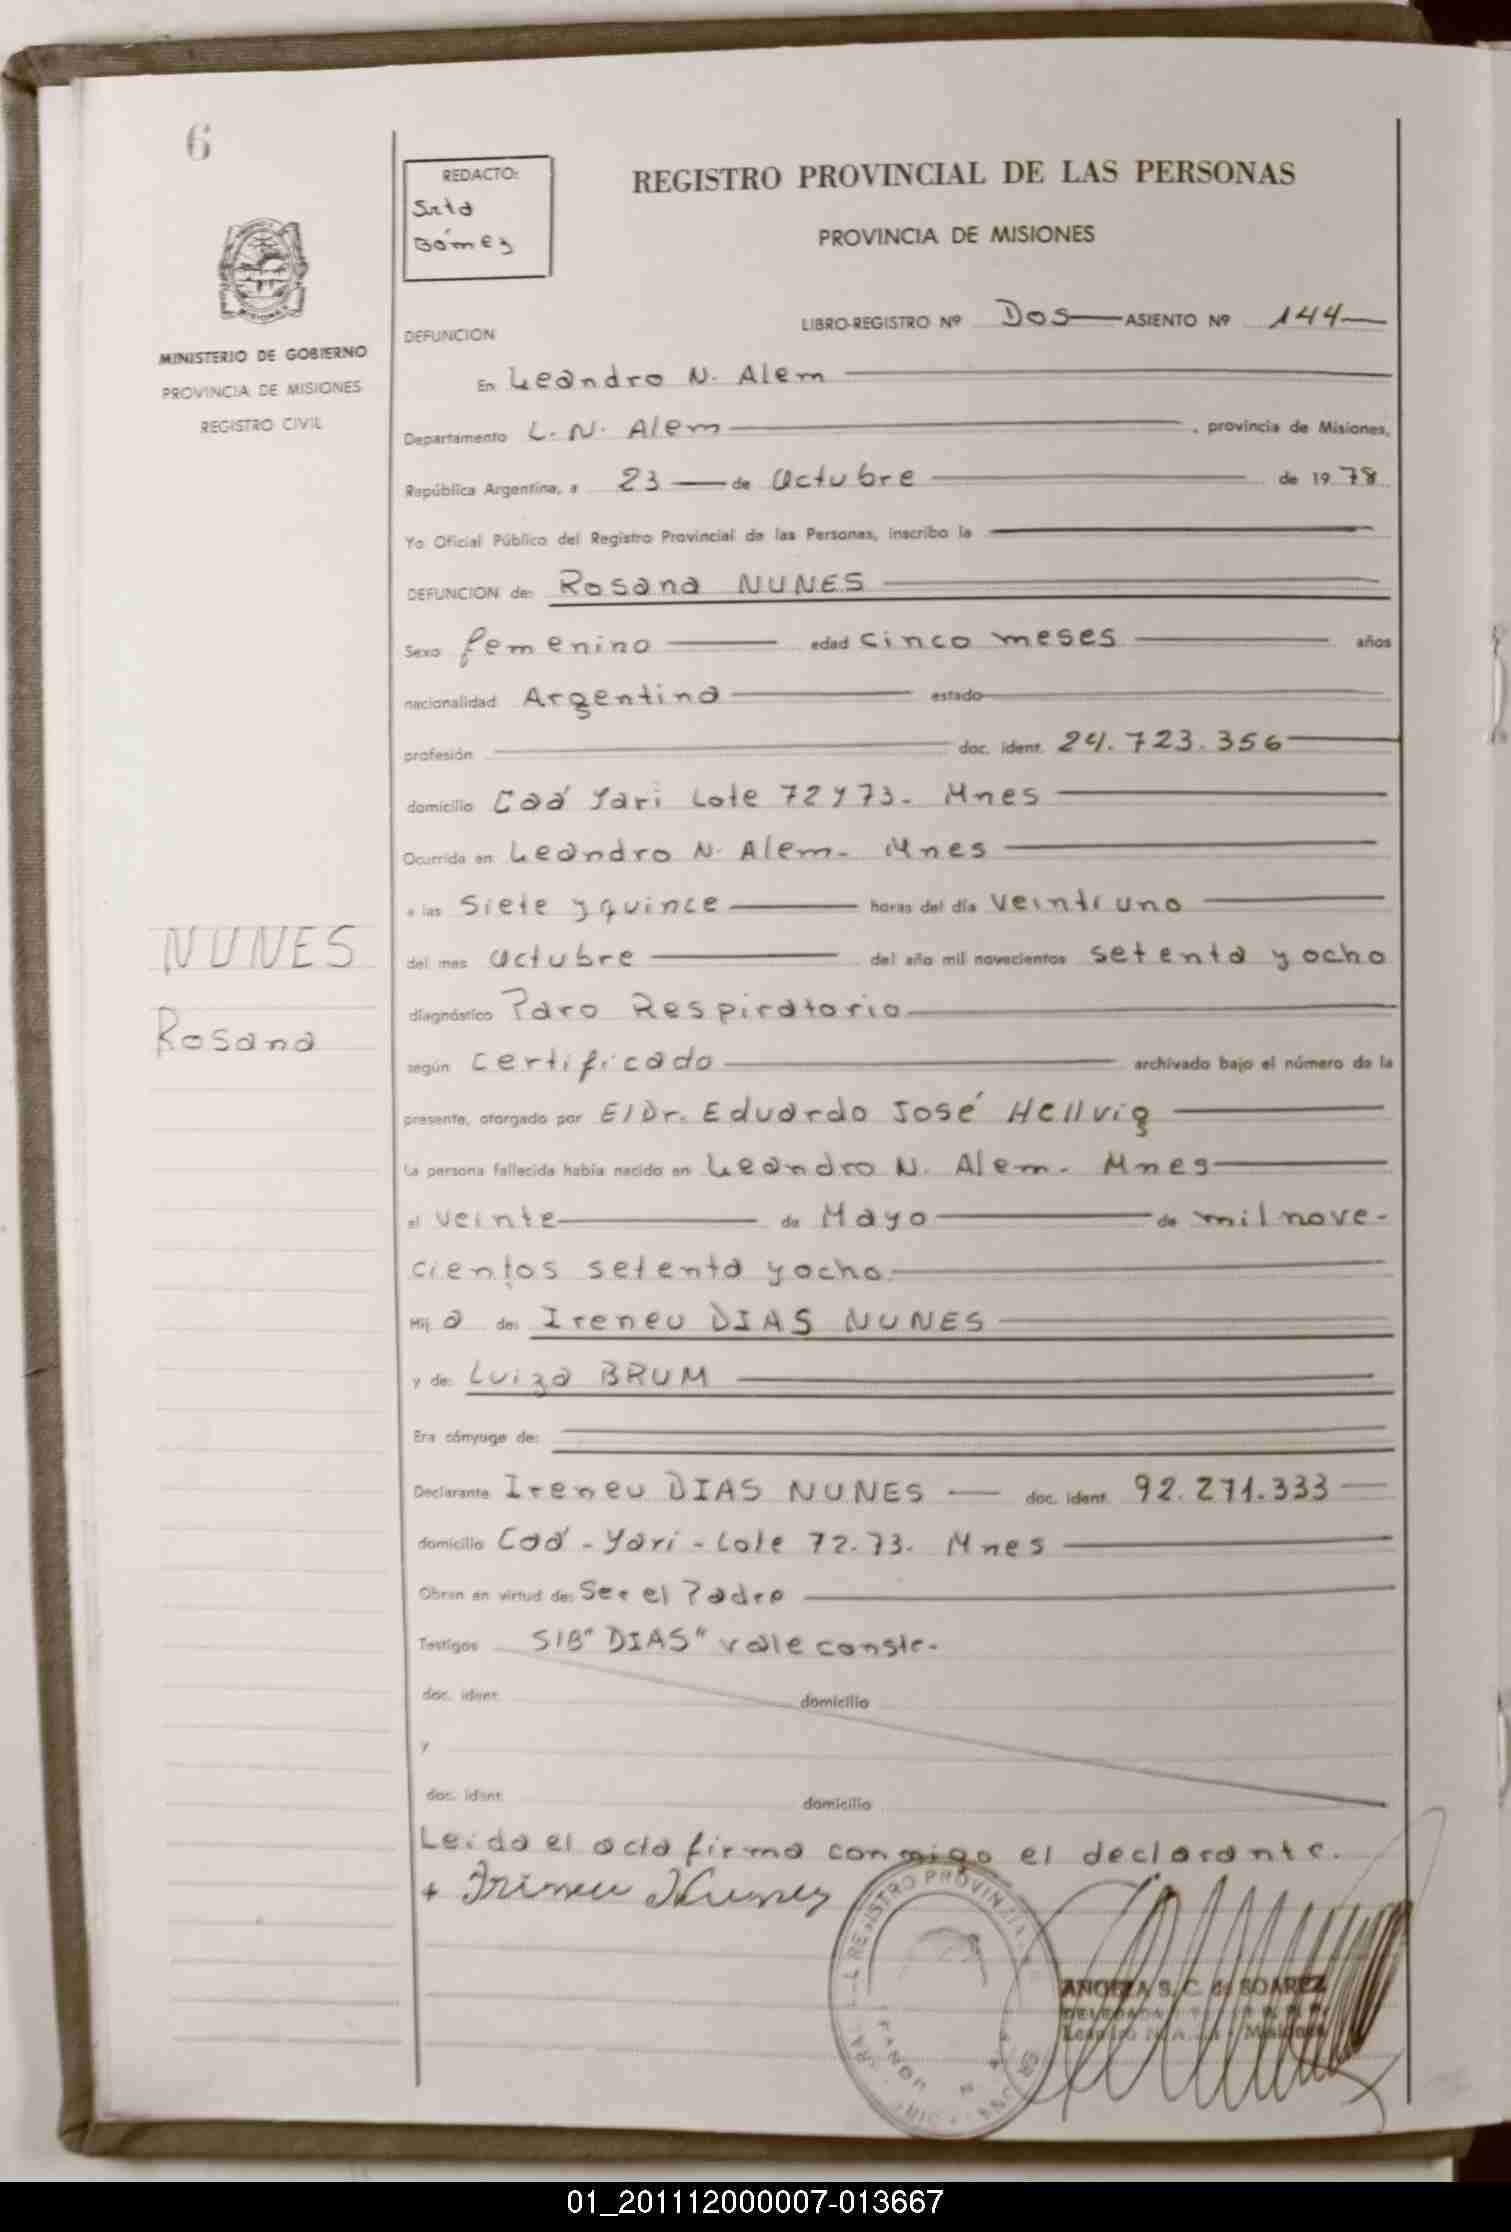 6
REDACTO:
Srta
Gómez
REGISTRO PROVINCIAL DE LAS PERSONAS
PROVINCIA DE MISIONES
MINISTERIO DE GOBIERNO
PROVINCIA DE MISIONES
REGISTRO CIVIL
DEFUNCION
LIBRO-REGISTRO Nº Dos ASIENTO Nº 144
En Leandro N. Alem
Departamento L. N. Alem, provincia de Misiones,
República Argentina, a 23 de Octubre de 1978
Yo Oficial Público del Registro Provincial de las Personas, inscribo la
DEFUNCION de: Rosana NUNES
Sexo femenino edad cinco meses años
nacionalidad Argentina estado
profesión doc. ident. 24.723.356
domicilio Caá Yari Lote 72 y 73. Mnes
Ocurrida en Leandro N. Alem. Mnes
a las siete y quince horas del día veintiuno
del mes Octubre del año mil novecientos setenta y ocho
diagnóstico Paro Respiratorio
según certificado archivado bajo el número de la
presente, otorgado por El Dr. Eduardo José Hellvig
La persona fallecida había nacido en Leandro N. Alem. Mnes
el veinte de Mayo de mil nove-
cientos setenta y ocho
Hij a de: Ireneu DIAS NUNES
y de: Luiza BRUM
Era cónyuge de:
Declarante Ireneu DIAS NUNES doc. ident. 92.271.333
domicilio Caá - Yari - Lote 72.73. Mnes
Obran en virtud de: Ser el Padre
Testigos S/B "DIAS" vale conste.
doc. ident. domicilio
y
doc. ident. domicilio
Leida el acta firma conmigo el declarante.
+ Irineu Nunes
NUNES
Rosana
REGISTRO PROVINCIAL
S. C. de SOAREZ
Misiones
01_201112000007-013667